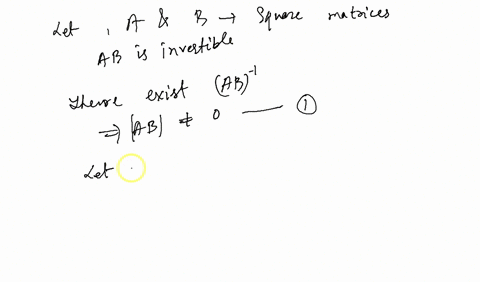 Let , A & B → Square matrices
AB is invertible
There exist (AB)⁻¹
⇒ |AB| ≠ 0 —— ①
Let